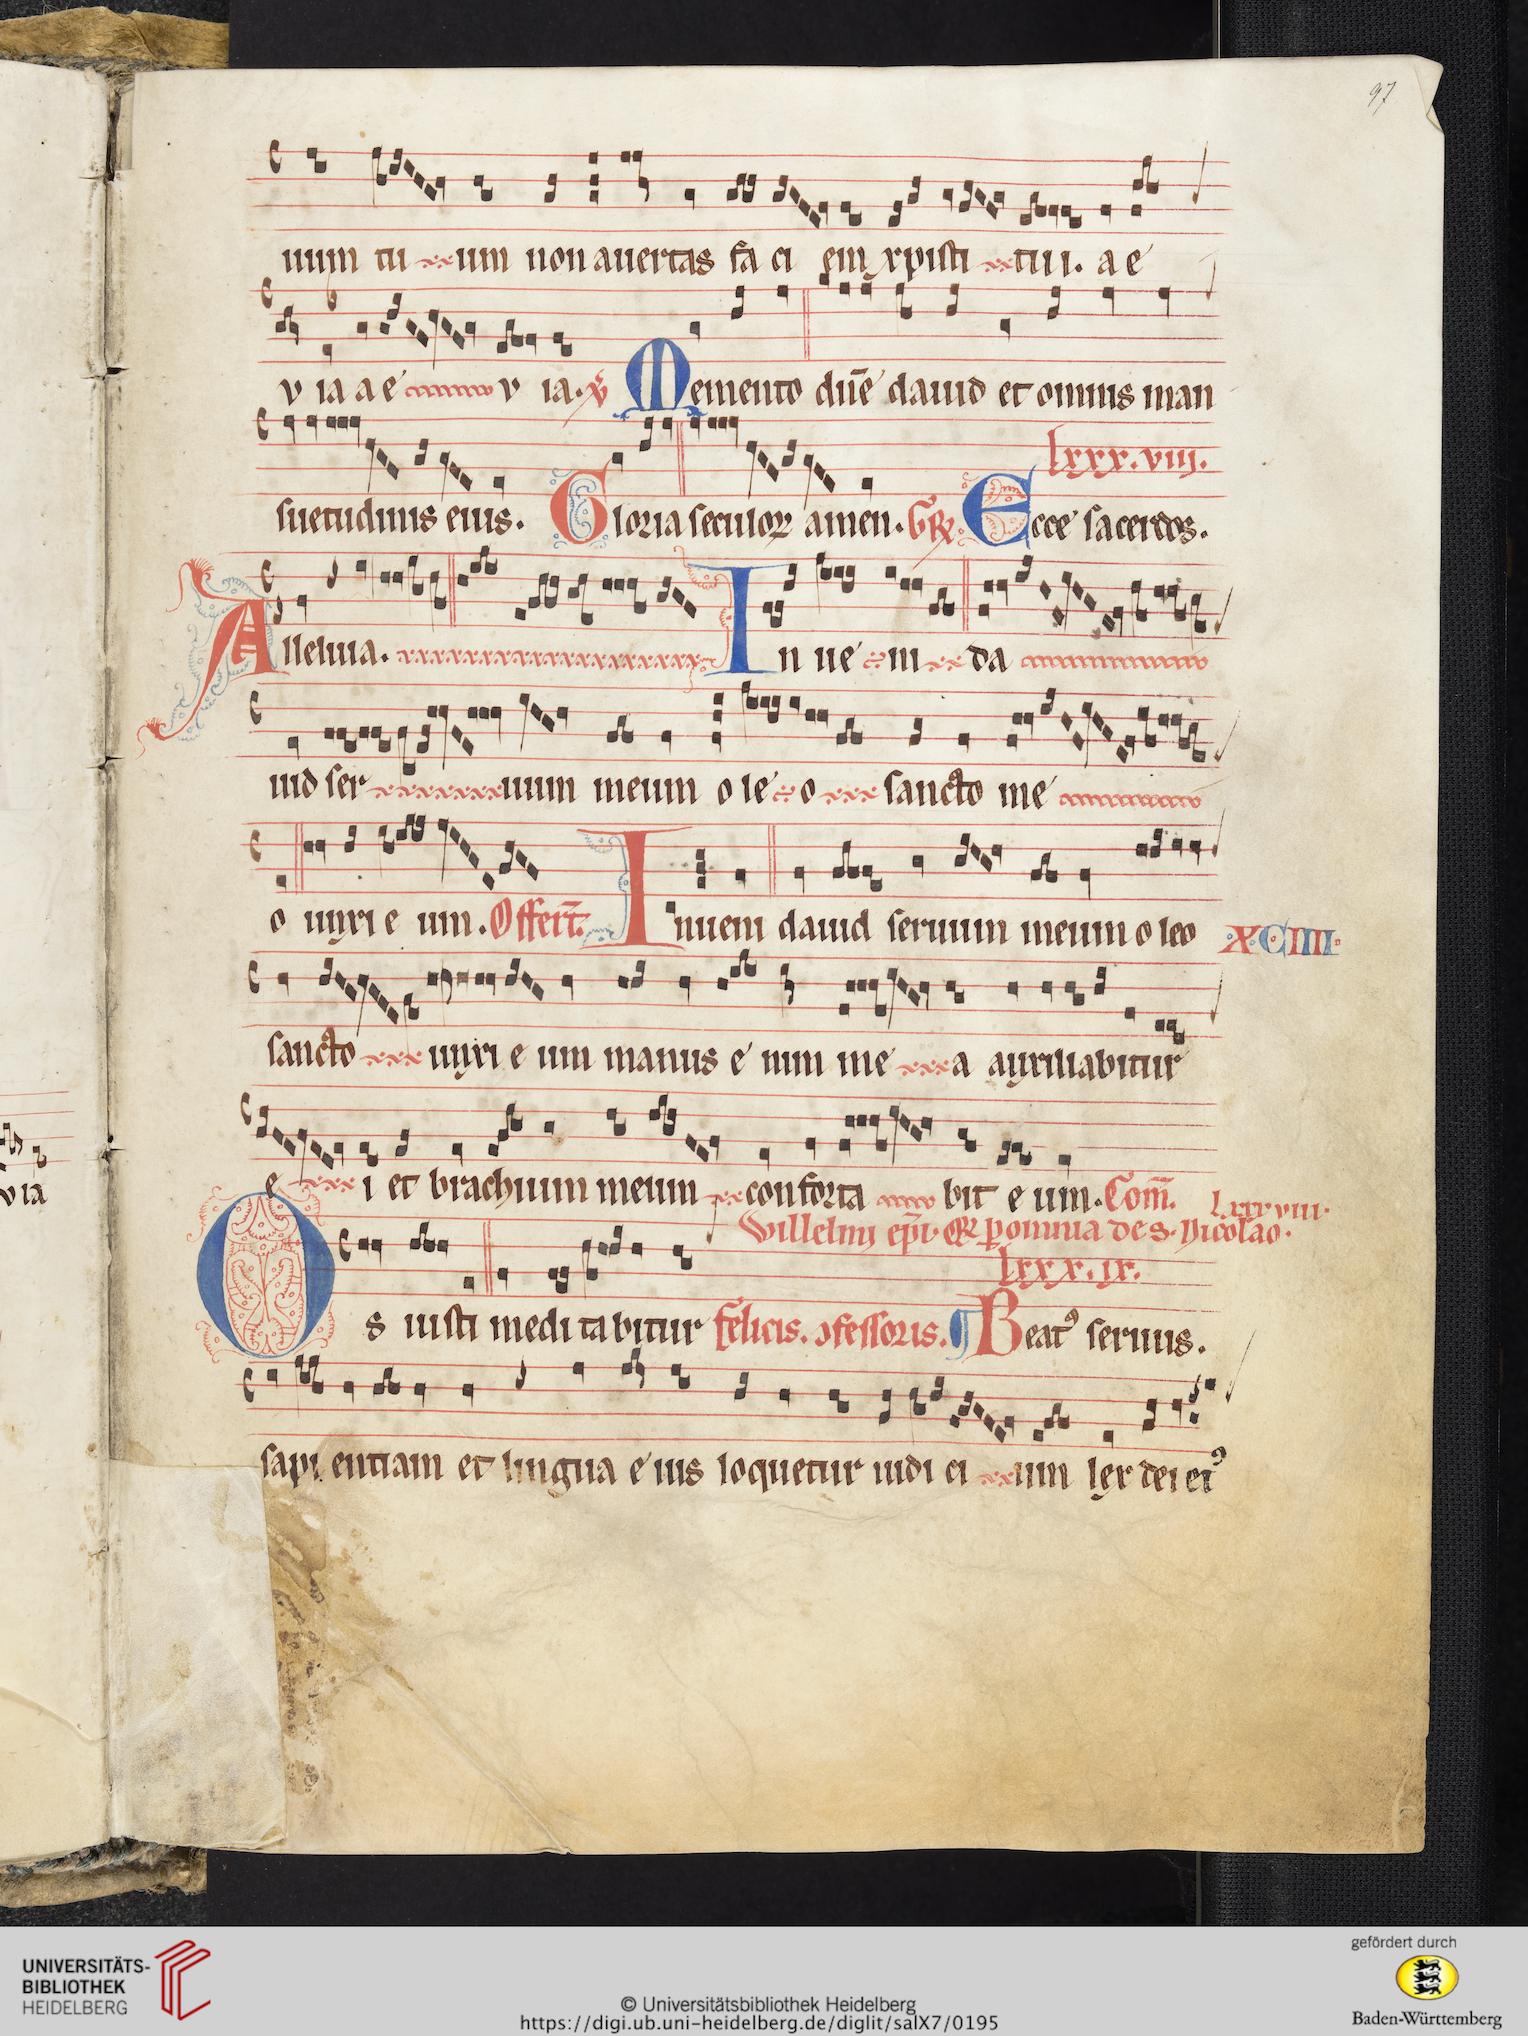 97
uum tu um non auertas fa ci em xpisti tui i. a e
v ia a e v ia. ℣ Memento dn̄e dauid et omnis man
lxxx.viij.
suetudinis eius. Gloria seculoꝝ amen. Gꝝ. Ecce sacerdos.
Alleluia. In ue ni da
uid ser uum meum o le o sancto me
o unxi e um. Offert̄. Inueni dauid seruum meum o leo
XCIIII.
sancto unxi e um manus e nim me a auxiliabitur
e i et brachium meum conforta bit e um. Com̄.
lxxxviii.
Willelmi ep̄i. Eꝝ ꝑ omnia de S. Nicolao.
lxxx.ix.
Os iusti medi ta bitur felicis. ɔfessoris. ¶ Beatꝰ seruus.
sapi entiam et lingua e ius loquetur iudi ci um lex dei eiꝰ
via
UNIVERSITÄTS-
BIBLIOTHEK
HEIDELBERG
© Universitätsbibliothek Heidelberg
https://digi.ub.uni-heidelberg.de/diglit/salX7/0195
gefördert durch
Baden-Württemberg